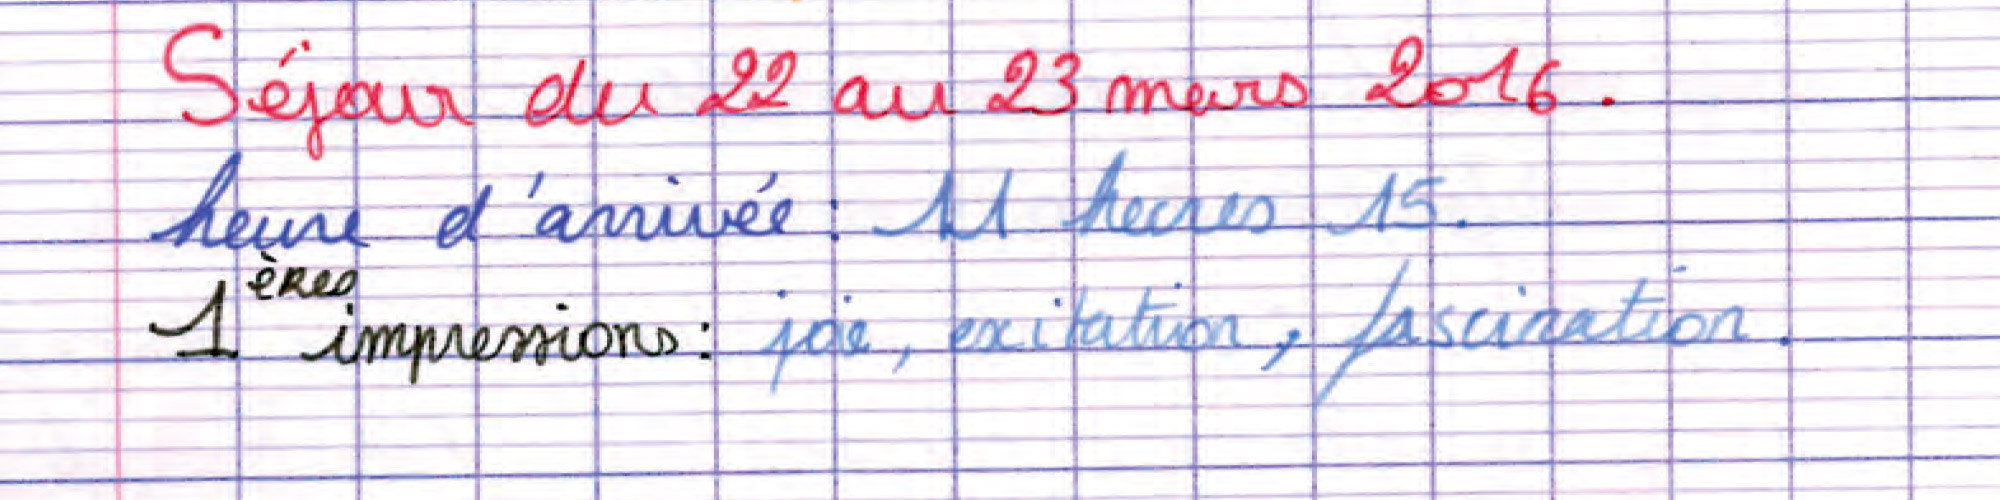 Séjour du 22 au 23 mars 2016.
heure d'arrivée : 11 heures 15.
1ères impressions : joie, exitation, fascination.